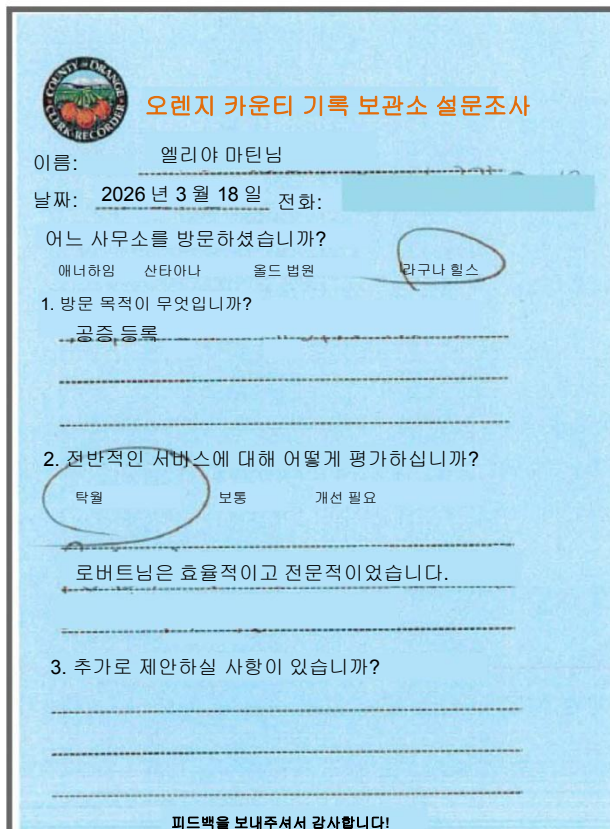 COUNTY OF ORANGE
CLERK-RECORDER
오렌지 카운티 기록 보관소 설문조사
이름: 엘리야 마틴님
날짜: 2026 년 3 월 18 일 전화:
어느 사무소를 방문하셨습니까?
애너하임 산타아나 올드 법원 라구나 힐스
1. 방문 목적이 무엇입니까?
공증 등록
2. 전반적인 서비스에 대해 어떻게 평가하십니까?
탁월 보통 개선 필요
로버트님은 효율적이고 전문적이었습니다.
3. 추가로 제안하실 사항이 있습니까?
피드백을 보내주셔서 감사합니다!